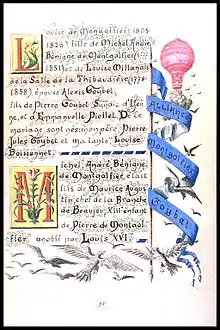 Louise de Montgolfier 1805
1829) fille de Michel André
Bénigne de Montgolfier
1851) et de Louise Millanois
de la Salle de la Thibaudière(1778
1858) épouse Alexis Goybet
fils de Pierre Goybet
et d'Emmanuelle Piollet. De ce
mariage sont nés: mon père Pierre
Jules Goybet et ma tante, Louise
Boissonnet.
Michel, André, Bénigne
de Montgolfier, était
fils de Maurice Augus
tin chef de la Branche
de Beaujeu XIIIe enfant
de Pierre de Montgol
fier anobli par Louis XVI.
ALLIANCE
Montgolfier
Goybet